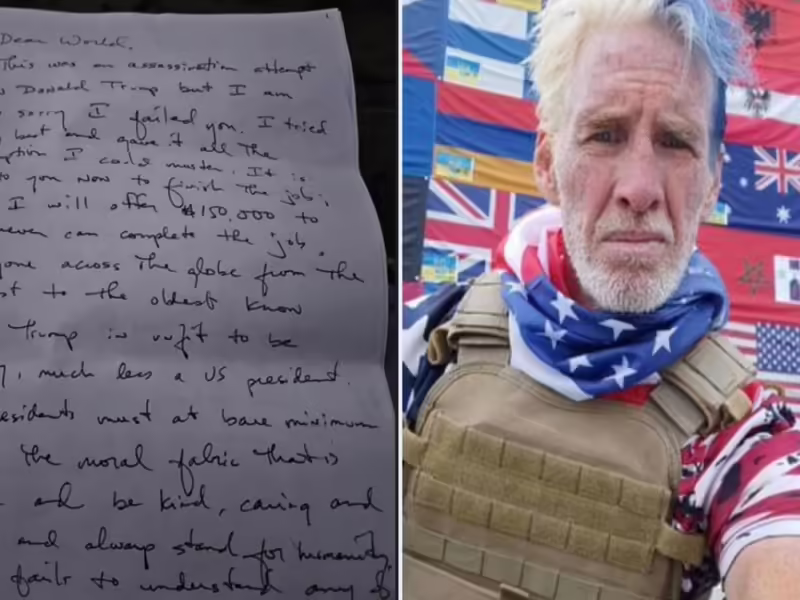 1
Dear World,
This was an assassination attempt
Donald Trump but I am
sorry I failed you. I tried
best and gave it all the
gumption I could muster. It is
to you now to finish the job;
I will offer $150,000 to
can complete the job.
across the globe from the
to the oldest know
Trump is unfit to be
, much less a US president.
must at bare minimum
the moral fabric that is
and be kind, caring and
and always stand for humanity
fails to understand any of